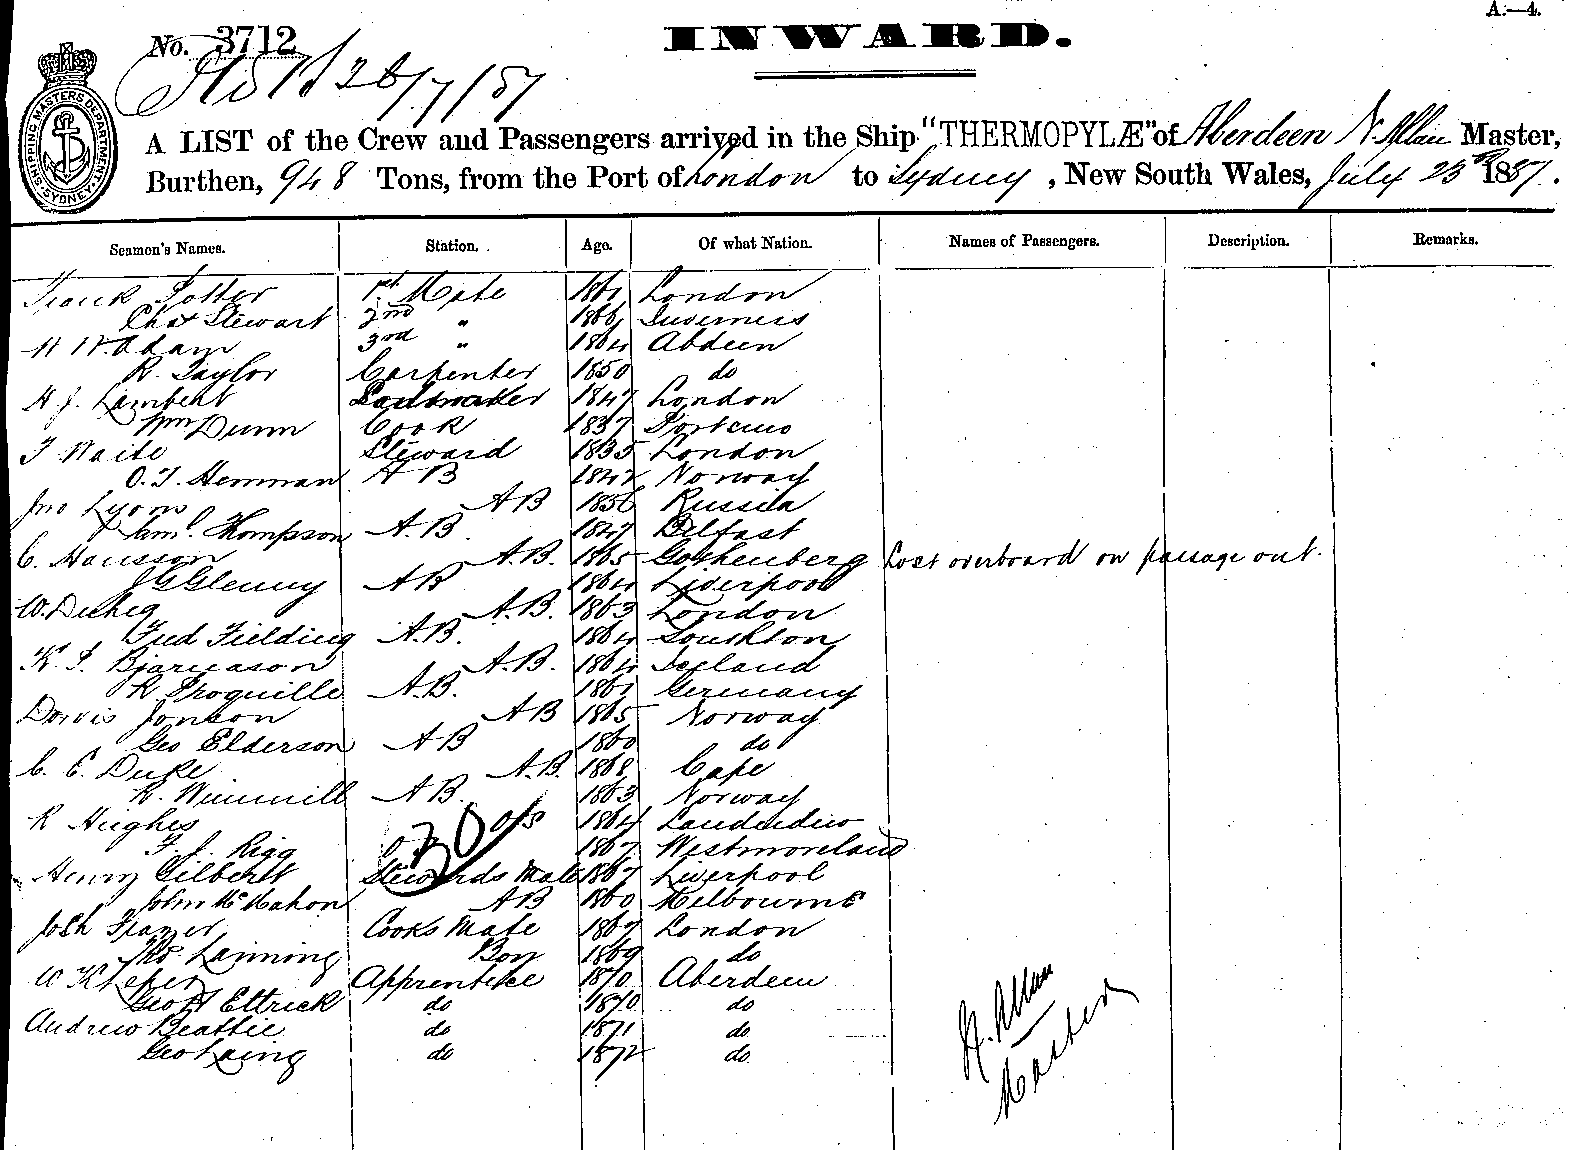 A.—4.
No. 3712
INWARD.
28/7/87
SHIPPING MASTERS DEPARTMENT SYDNEY
A LIST of the Crew and Passengers arrived in the Ship "THERMOPYLÆ" of Aberdeen N. Allan Master,
Burthen, 948 Tons, from the Port of London to Sydney, New South Wales, July 23rd 1887.
Seamen's Names. Station. Age. Of what Nation. Names of Passengers. Description. Remarks.
Frank Potter 1st Mate 1861 London
Chas Stewart 2nd " 1866 Inverness
H W Adam 3rd " 1864 Abdeen
R. Taylor Carpenter 1850 do
H J. Lambert Sailmaker 1847 London
Wm Dunn Cook 1837
T Waite Steward 1835 London
O. T. Herman A B 1842 Norway
Jno Lyons A B 1856 Russia
Saml. Thompson A. B. 1847 Belfast
C. Hansson A. B. 1865 Gothenberg Lost overboard on passage out.
J G Glenny A B 1864 Liverpool
W. Duhig A. B. 1863 London
Fred Fielding A. B. 1864
K. S. Bjarnason A. B. 1864 Iceland
R Froquille A. B. 1861 Germany
Jonson A B 1865 Norway
Geo Elderson A B 1860 do
C. E. Duke A. B. 1868 Cape
R. Wimmill A B. 1863 Norway
R Hughes O/S 1864
T. J. Rigg 1867 Westmoreland
30
Henry Gilbert Stewards Mate 1867 Liverpool
John McMahon A B 1860 Melbourne
Josh Frazer Cooks Mate 1867 London
Thos. Lanning Boy 1869 do
W K Leper Apprentice 1870 Aberdeen
Geo H Ettrick do 1870 do
Andrew Beattie do 1871 do
Geo Laing do 1872 do
N. Allan
Master